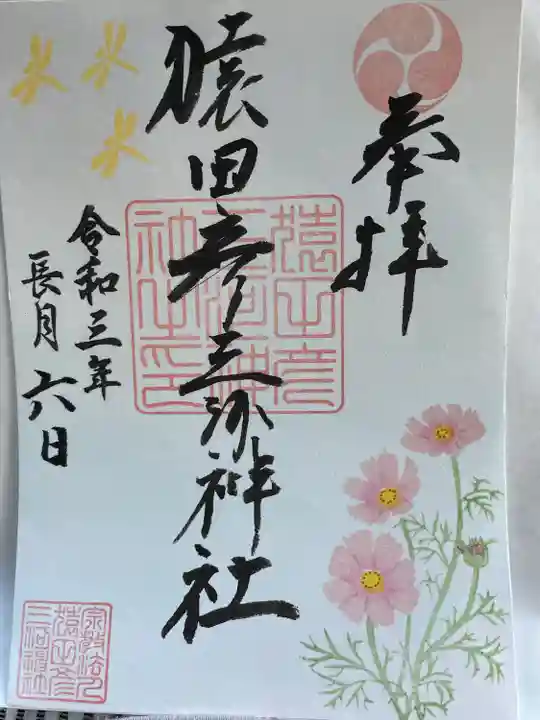 奉拝
猿田彦三河神社
令和三年
長月六日
猿田彦
三河神
社之印
宗教法人
猿田彦
三河神社